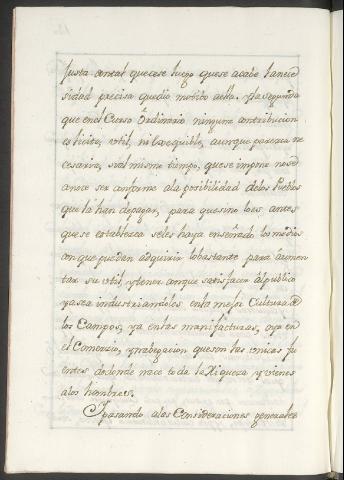 justa con tal que cese luego que se acabe la nece
sidad precisa que dio motibo aella. Y la segunda
que en el Curso Ordinario ninguna contribucion
es licita, util, ni la exequible, aunque parezca ne
cesaria, si al mismo tiempo, que se impone no se
conoce ser conforme ala posibilidad delos Pueblos
que la han depagar, para que si no lo es, antes
que se establezca seles haya enseñado los medios
con que puedan adquirir lo bastante para aumen
tar su util, y tener con que satisfacer al publico
ya sea industriandoles enla mejor Cultura de
los Campos, ya enlas manifacturas, o ya en
el Comercio, y nabegacion que son las unicas fu
entes dedonde nace toda la Riqueza y vienes
alos hombres.
Y pasando alas Consideraciones generales